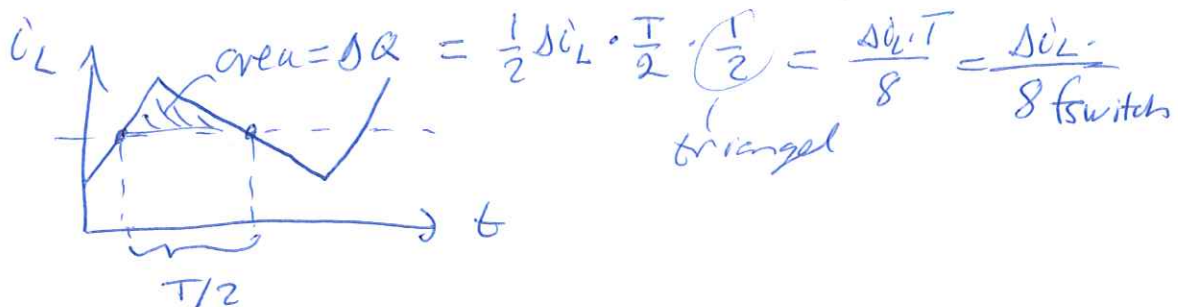 i_L area = ΔQ = 1/2 Δi_L · T/2 · 1/2 = Δi_L·T / 8 = Δi_L· / 8 fswitch
triangel
t
T/2